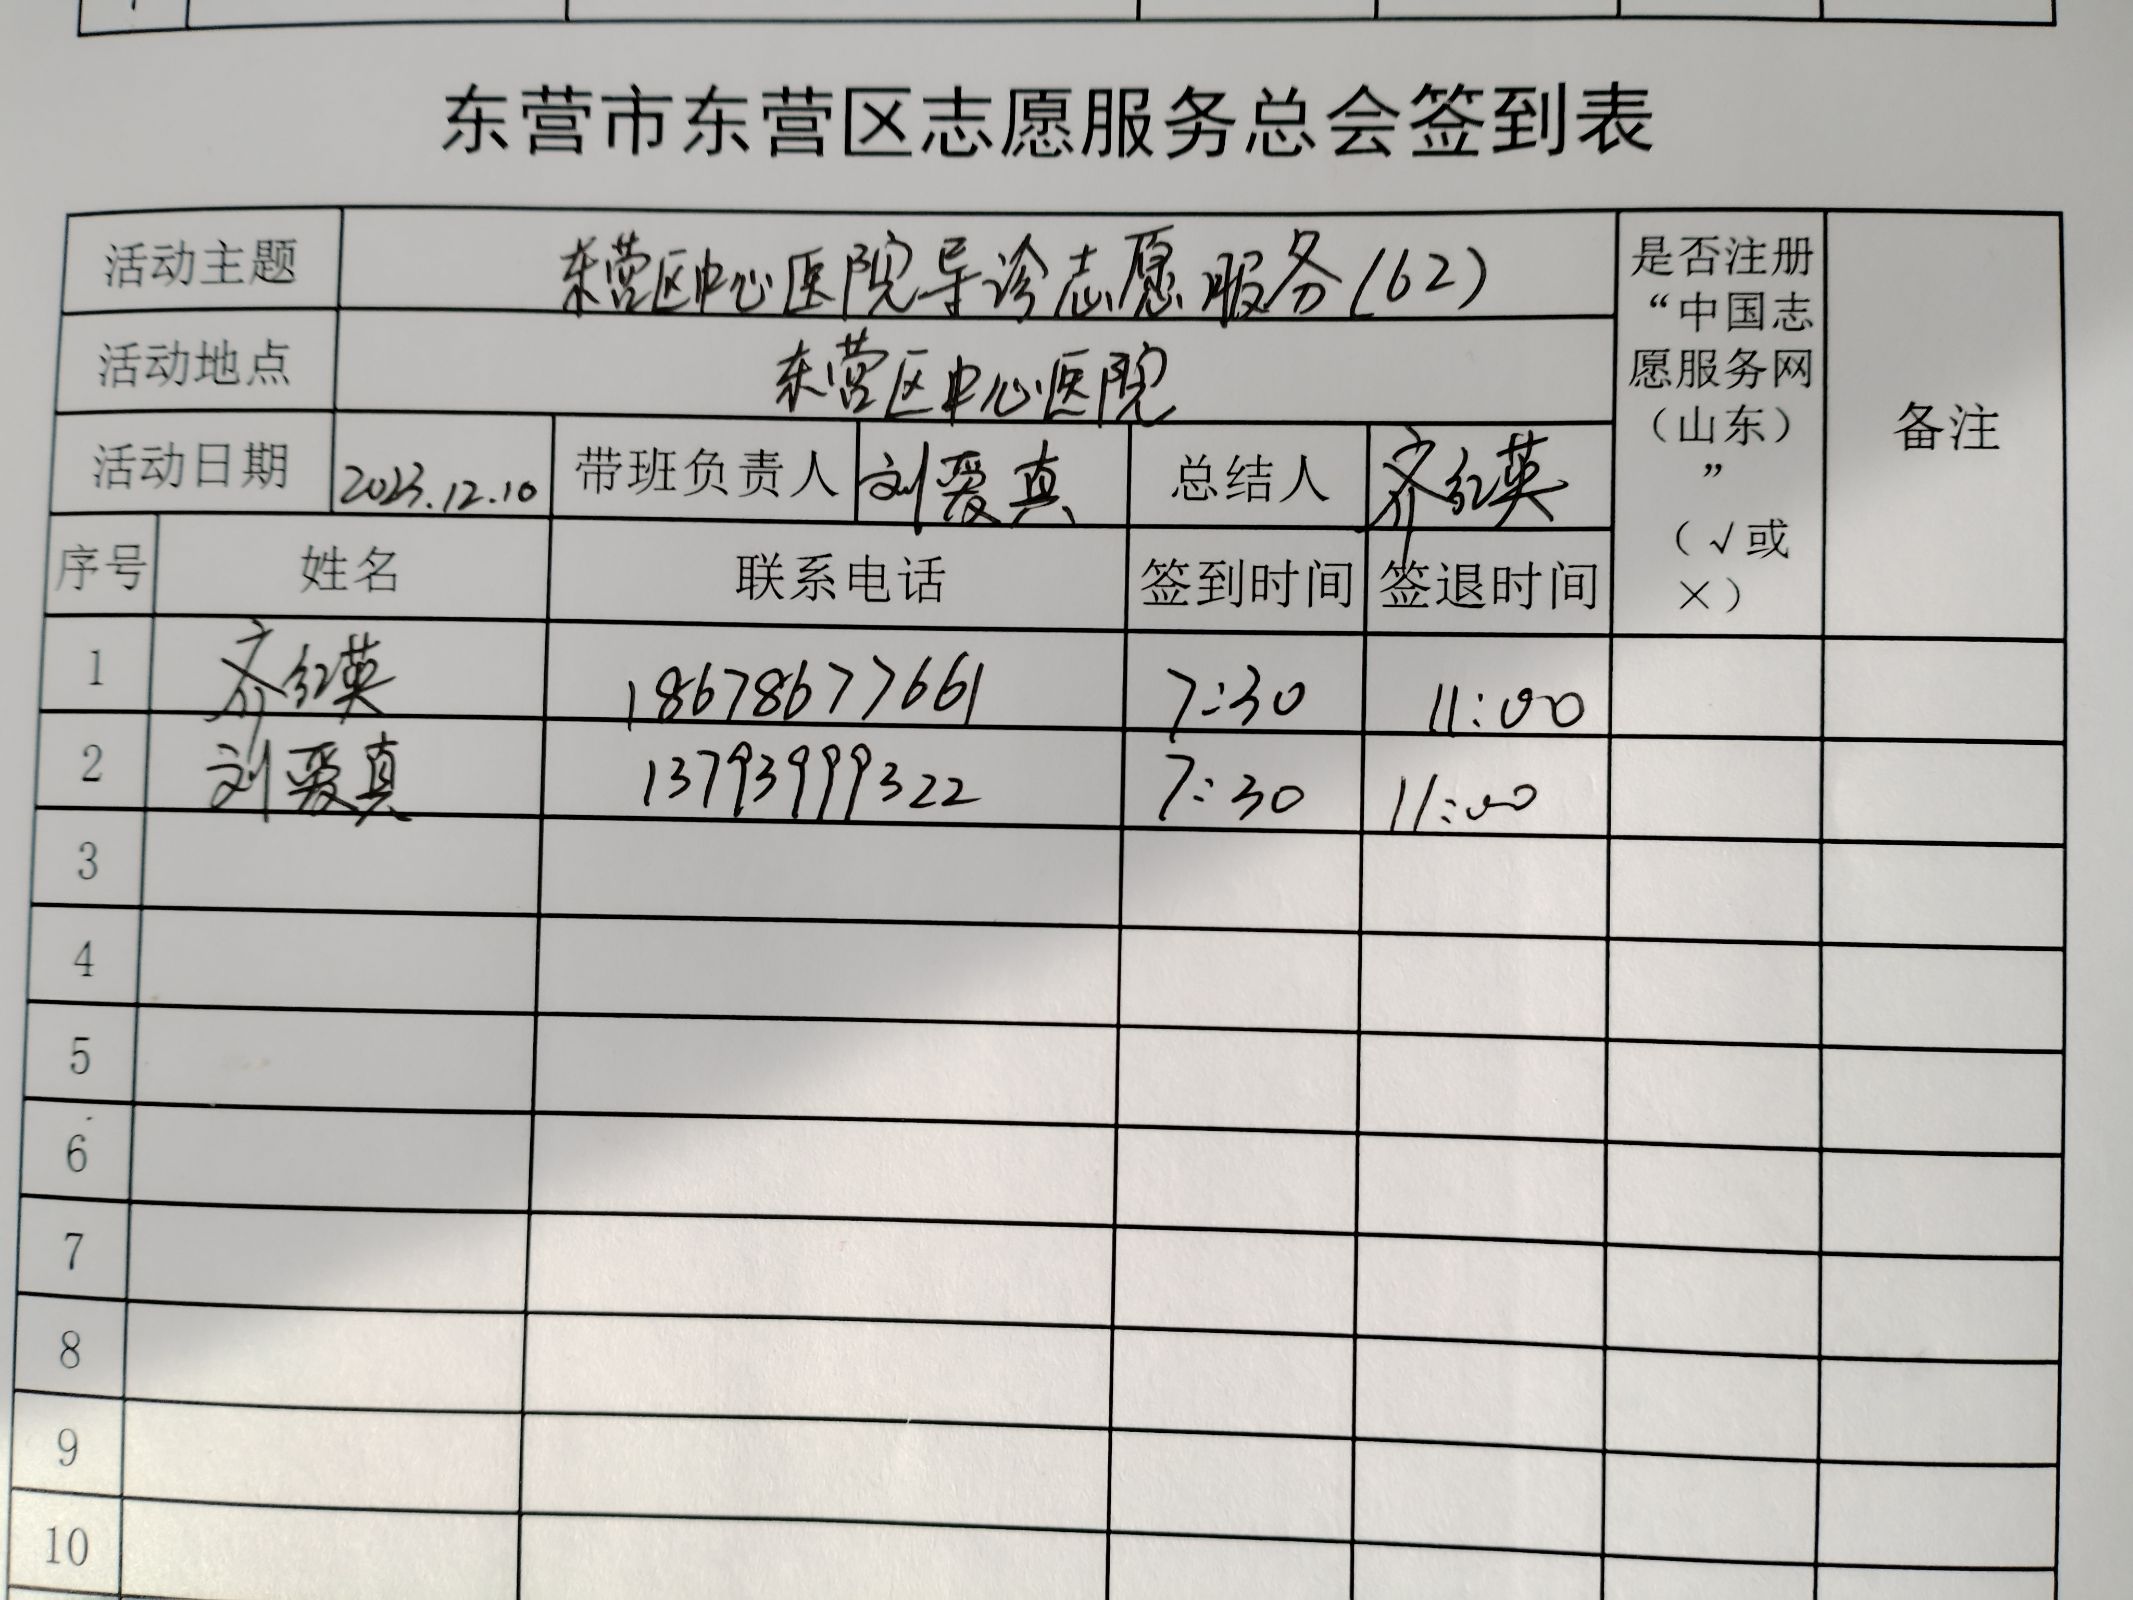 东营市东营区志愿服务总会签到表
活动主题 东营区中心医院导诊志愿服务(62)
活动地点 东营区中心医院
活动日期 2023.12.10 带班负责人 刘爱真 总结人 齐红英
是否注册
“中国志
愿服务网
（山东）
”
（√或
×）
备注
序号 姓名 联系电话 签到时间 签退时间
1 齐红英 18678677661 7:30 11:00
2 刘爱真 13793999322 7:30 11:00
3
4
5
6
7
8
9
10